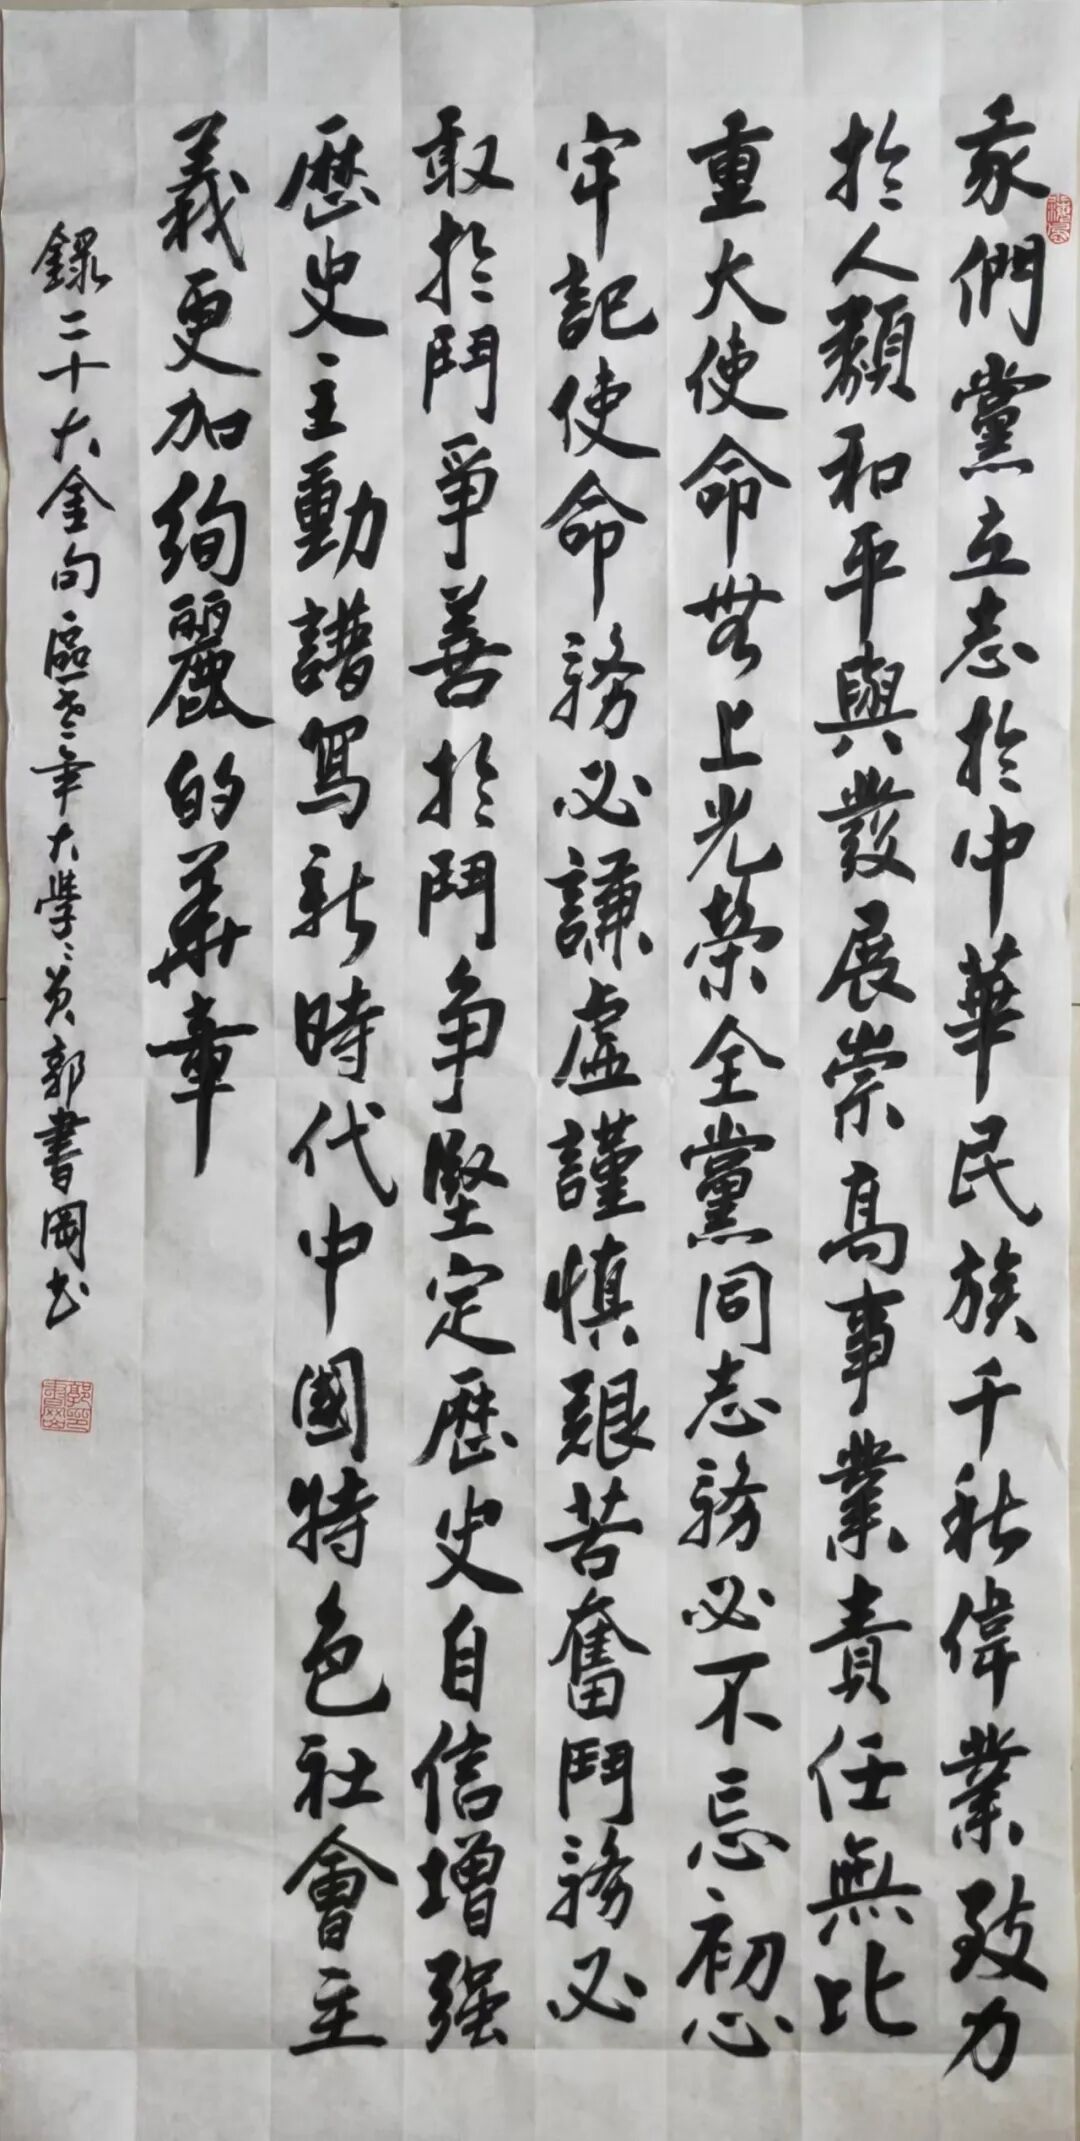 我們黨立志於中華民族千秋偉業致力
於人類和平與發展崇高事業責任無比
重大使命無上光榮全黨同志務必不忘初心
牢記使命務必謙虛謹慎艱苦奮鬥務必
敢於鬥爭善於鬥争堅定歷史自信增强
歷史主動譜寫新時代中國特色社會主
義更加絢麗的華章
錄二十大金句 年大學學員郭書岡书